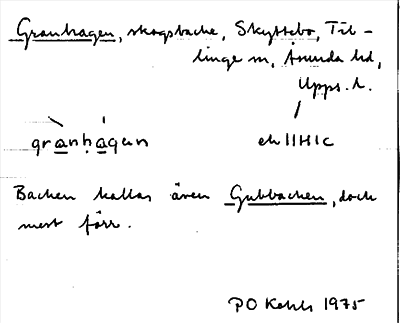 Granhagen, skogsbacke, Skyttebo, Til-
linge sn, Åsunda hd,
Upps. l.
granhagen ek 11H1c
Backen kallas även Gubbacken, dock
mest förr.
P O 1975